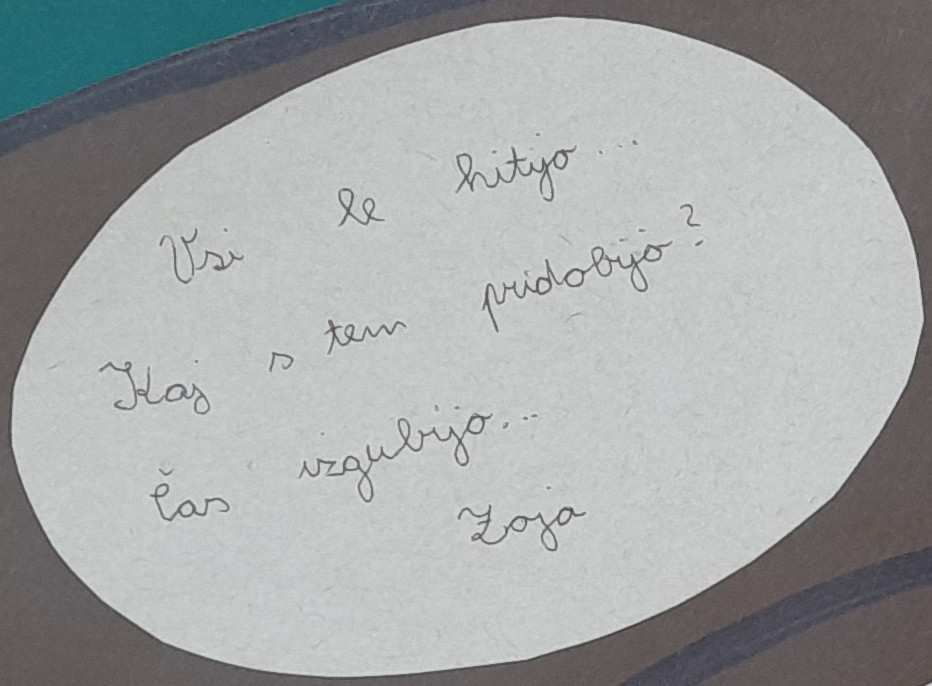 Vsi le hitijo...
Kaj s tem pridobijo?
Čas izgubijo...
Zoja